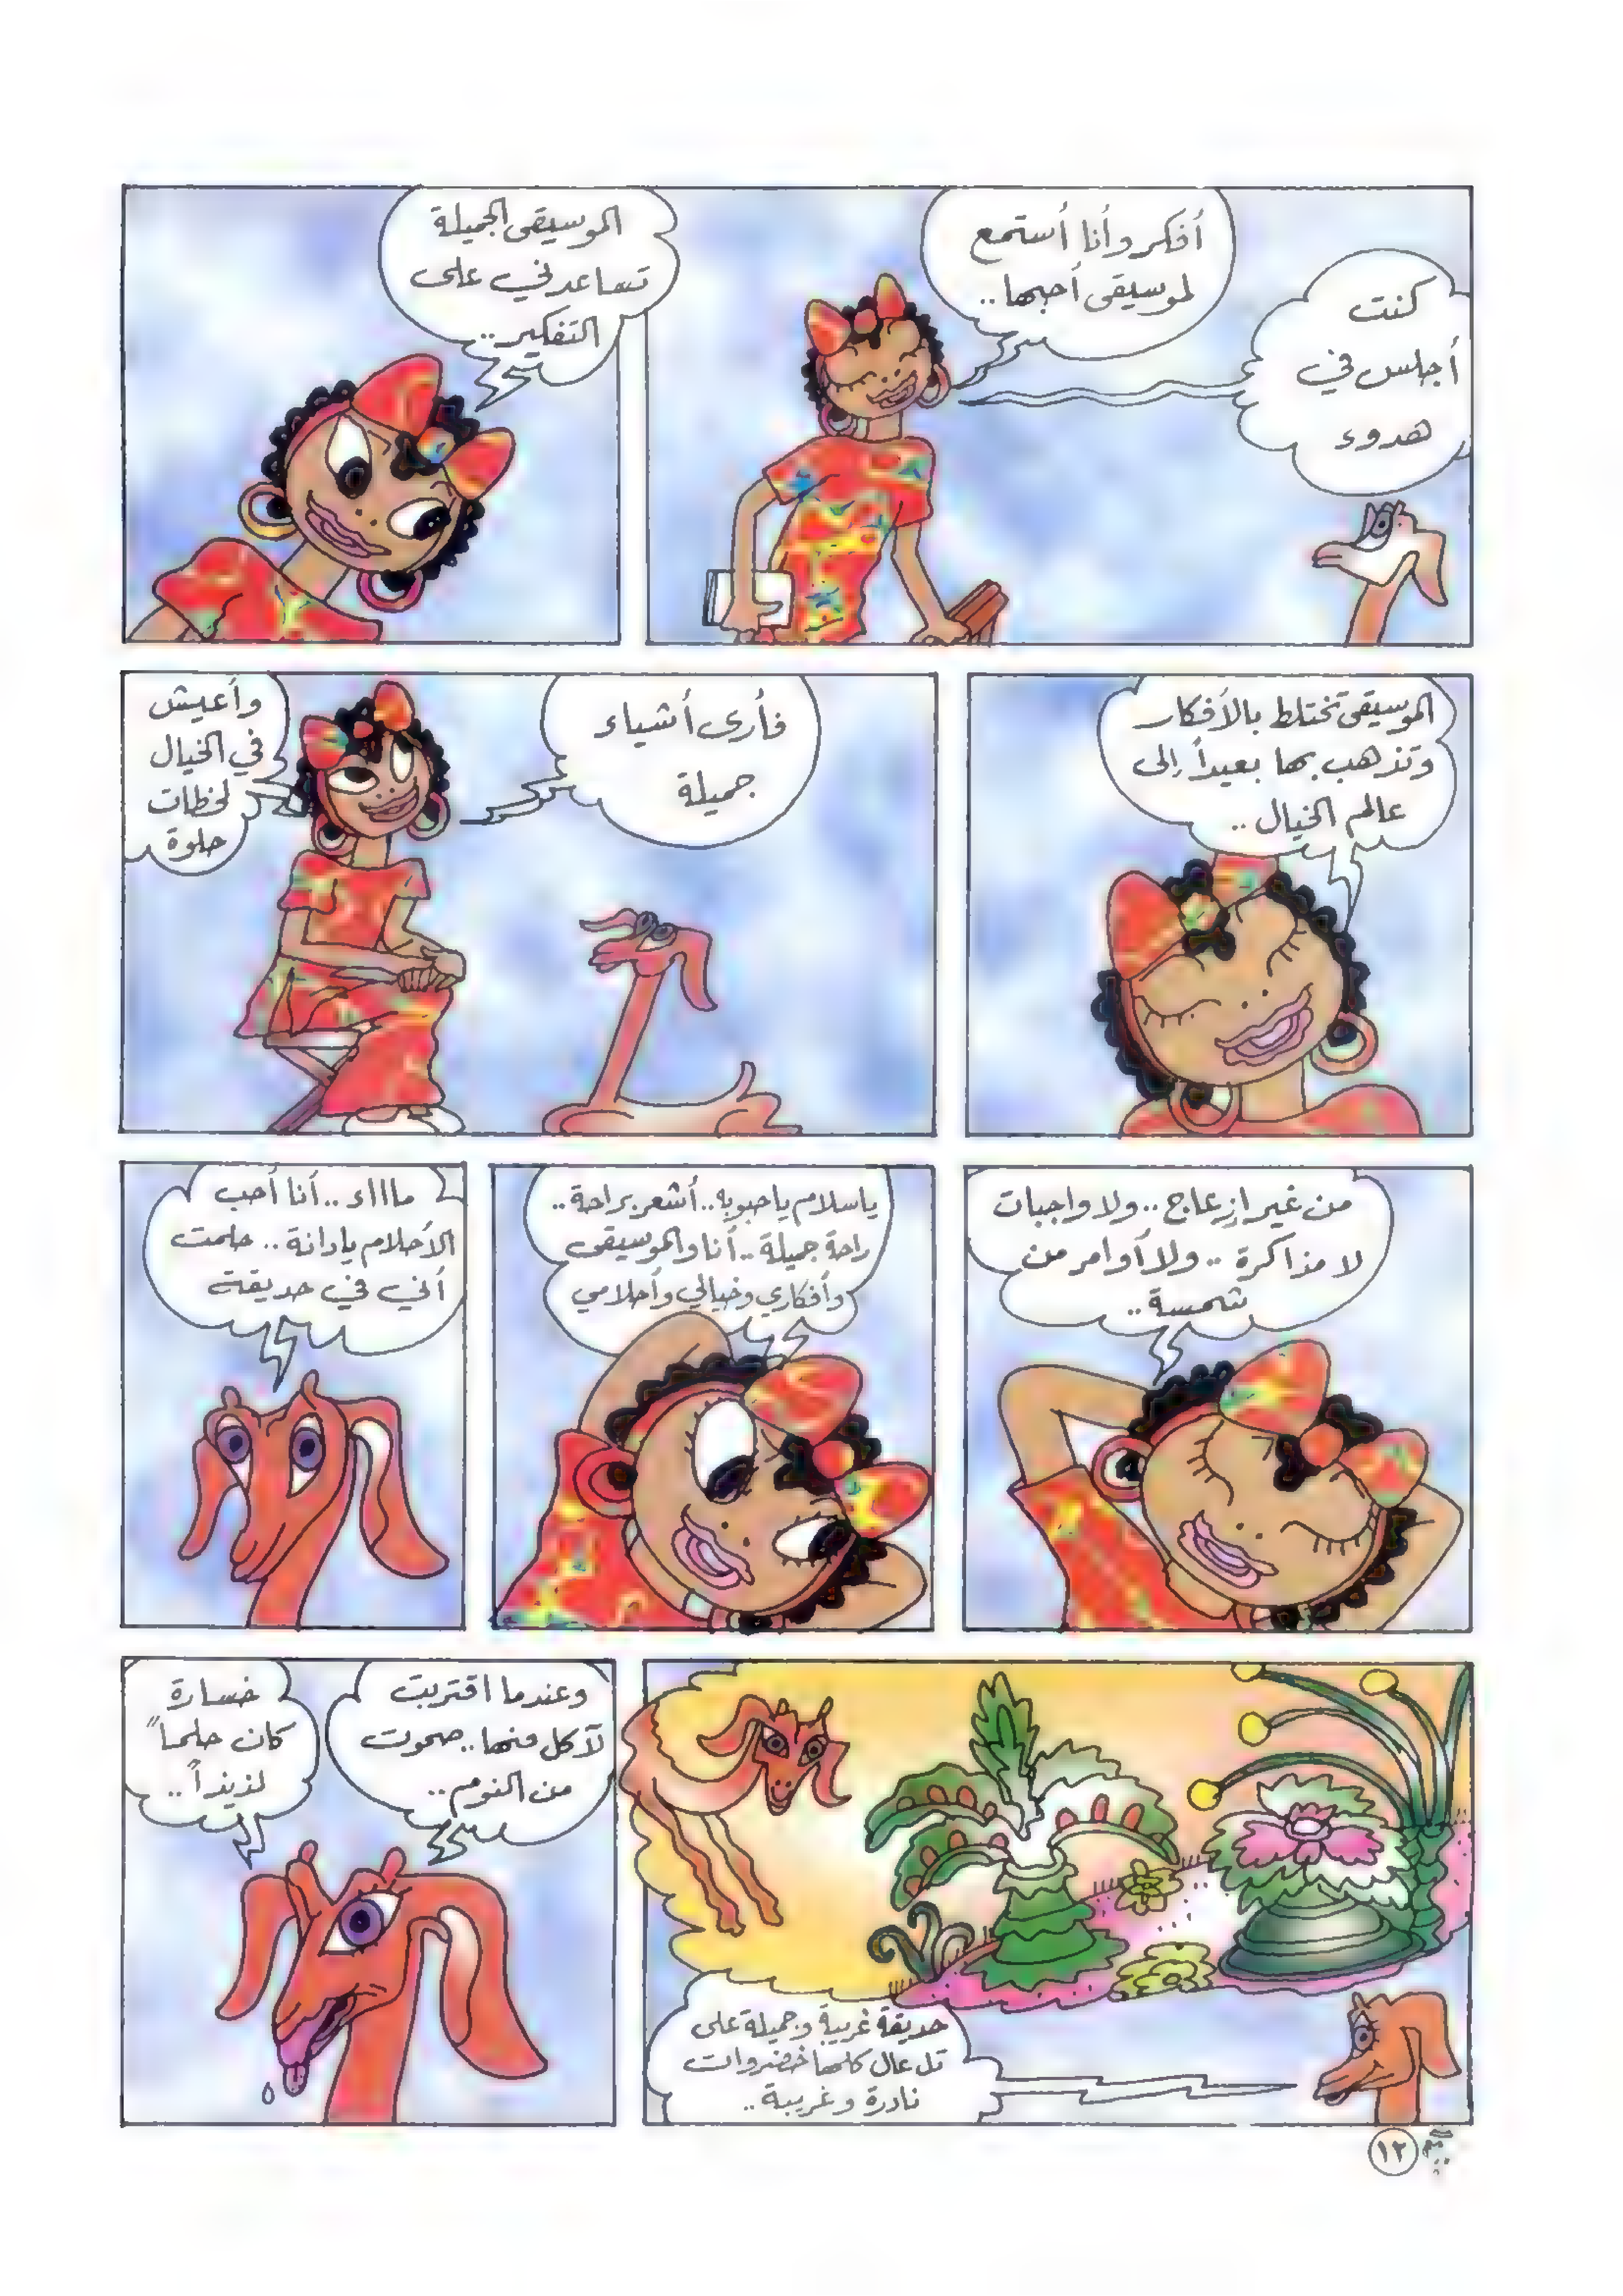 كنت
أجلس في
هدوء
أفكر وأنا أستمع
لموسيقى أحبها..
الموسيقى الجميلة
تساعدني على
التفكير..
الموسيقى تختلط بالأفكار
وتذهب بها بعيداً إلى
عالم الخيال..
فأرى أشياء
جميلة
وأعيش
في الخيال
لحظات
حلوة
من غير إزعاج.. ولا واجبات
لا مذاكرة.. ولا أوامر من
شمسة..
ياسلام ياحبوبه.. أشعر براحة..
راحة جميلة.. أنا والموسيقى
وأفكاري وخيالي وأحلامي
ماااء.. أنا أحب
الأحلام يادانة.. حلمت
أني في حديقة
حديقة غريبة وجميلة على
تل عال كلها خضروات
نادرة وغريبة..
وعندما اقتربت
لآكل منها.. صحوت
من النوم..
خسارة
كان حلماً
لذيذاً..
١٢